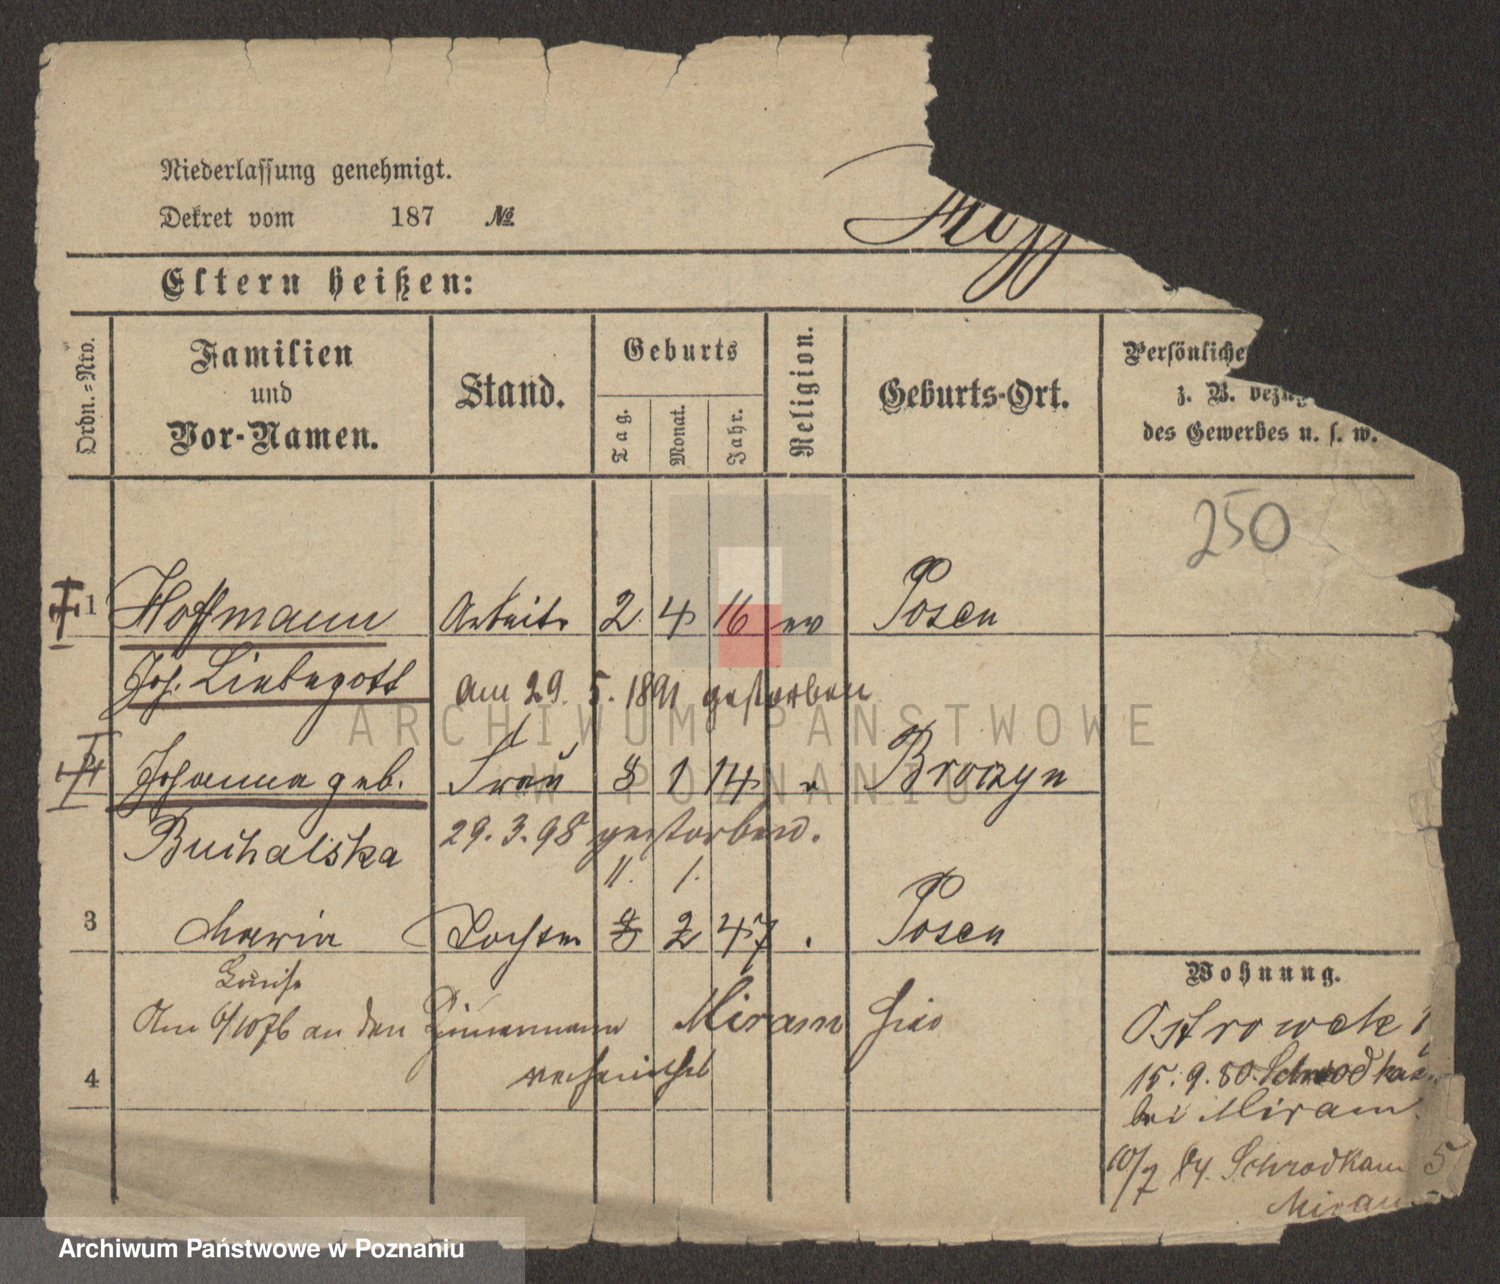 Niederlassung genehmigt.
Dekret vom 187 №
Hoff
Eltern heißen:
Ordn.-Nro.
Familien
und
Vor-Namen.
Stand.
Geburts
Tag.
Monat.
Jahr.
Religion.
Geburts-Ort.
Persönliche
z. B. bezüg
des Gewerbes u. s. w.
250
1 Hoffmann Arbeitr 2 4 16 ev Posen
Joh. Liebegott am 29. 5. 1891 gestorben
ARCHIWUM PAŃSTWOWE
W POZNANIU
2 Johanna geb. Frau 8 1 14 Broczyn
Buchalska 29. 3. 98 gestorben.
11. 1.
3 Maria Tochter 8 2 47 Posen
Louise
Am 6/10 76 an den Zimmermann Miram hier
verheirathet
4
Wohnung.
Ostrowek
15. 9. 80. Schrodka
bei Miram
10/7 84. Schrodkam 5
Miram
Archiwum Państwowe w Poznaniu